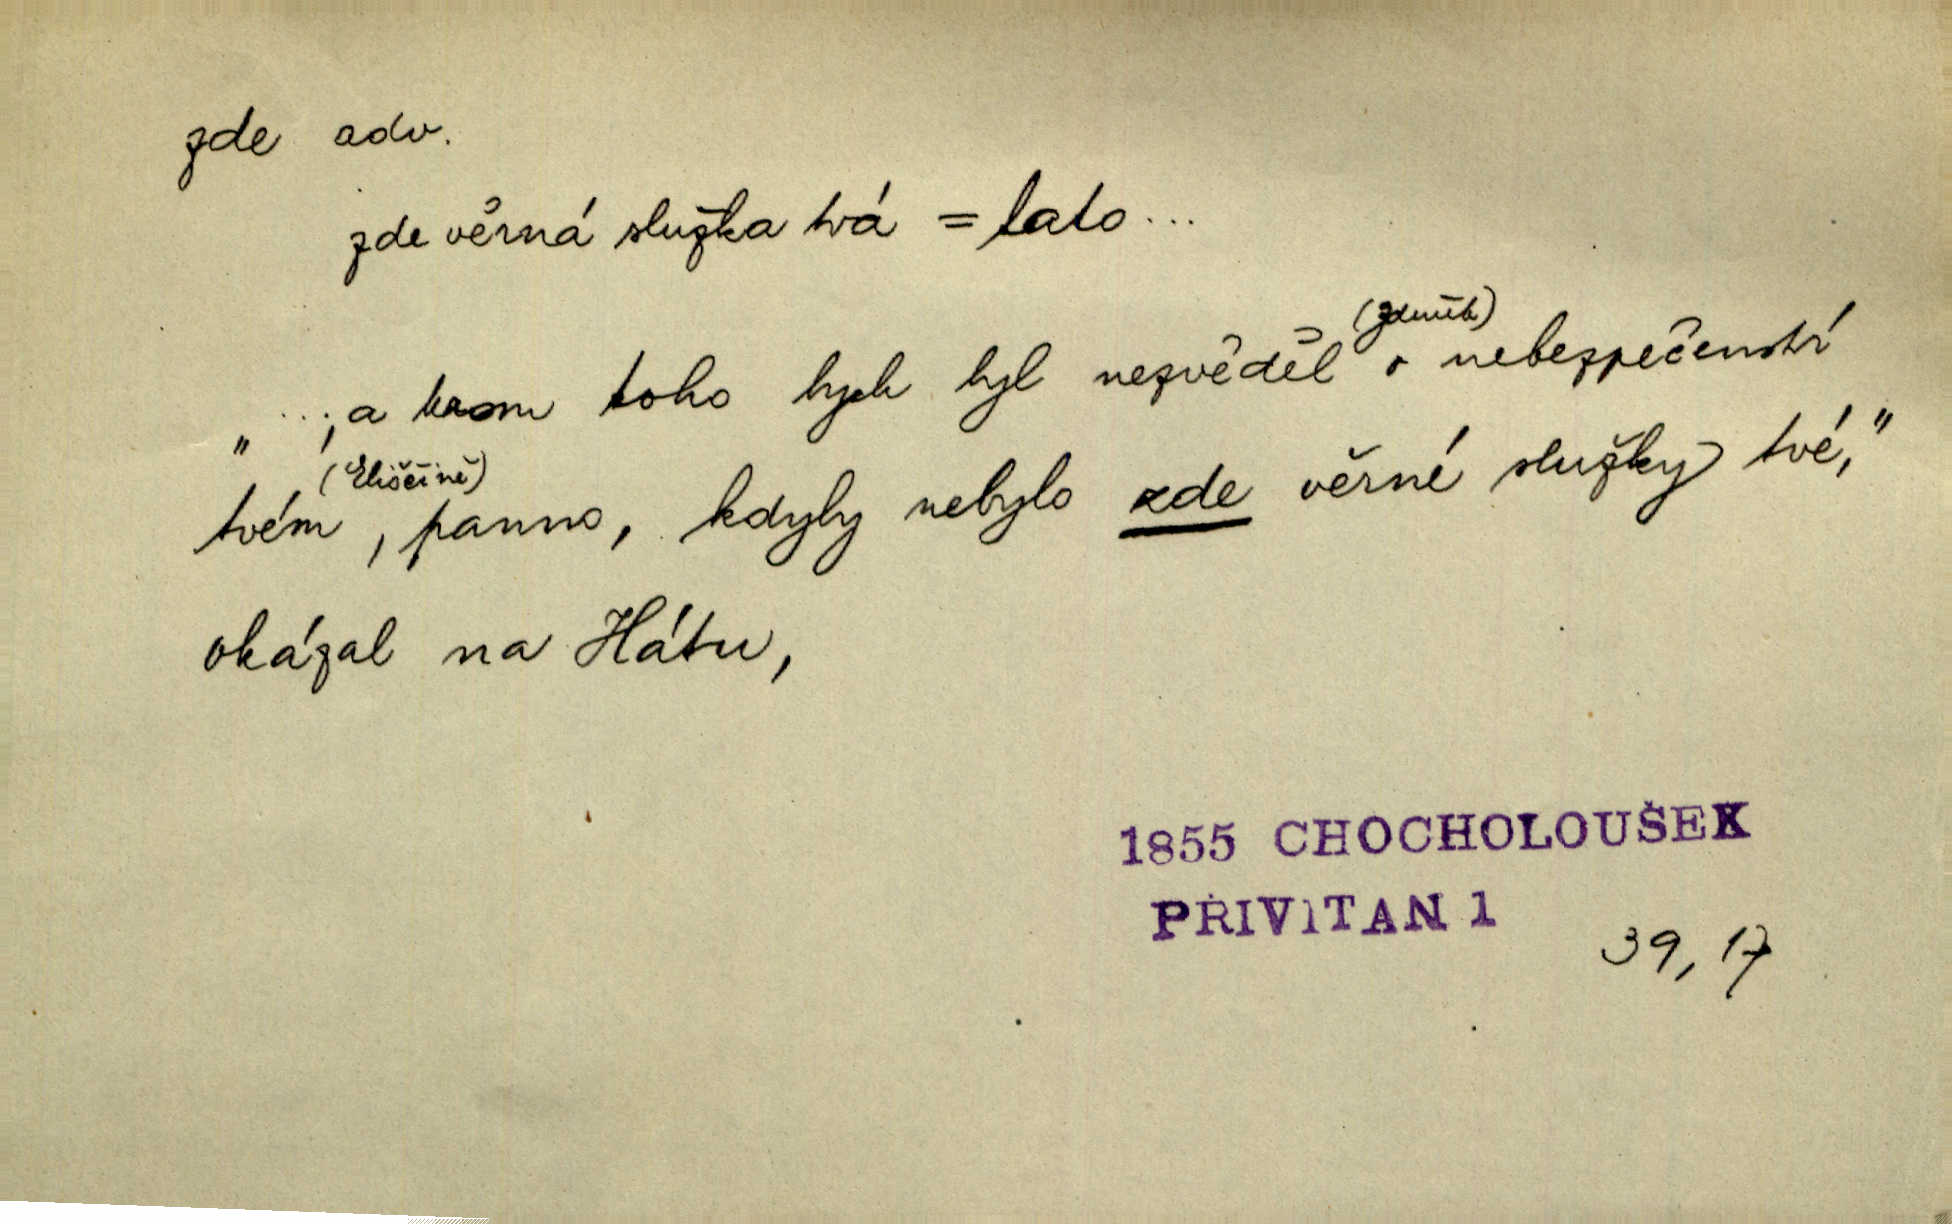 zde adv.
zde věrná služka tvá = tato ...
(Zdeněk)
„ ...; a krom toho bych byl nezvěděl o nebezpečenství
(Eliščině)
tvém, panno, kdyby nebylo zde věrné služky tvé,"
okázal na Hátu,
1855 CHOCHOLOUŠEK
PŘIVITAN 1
39, 17